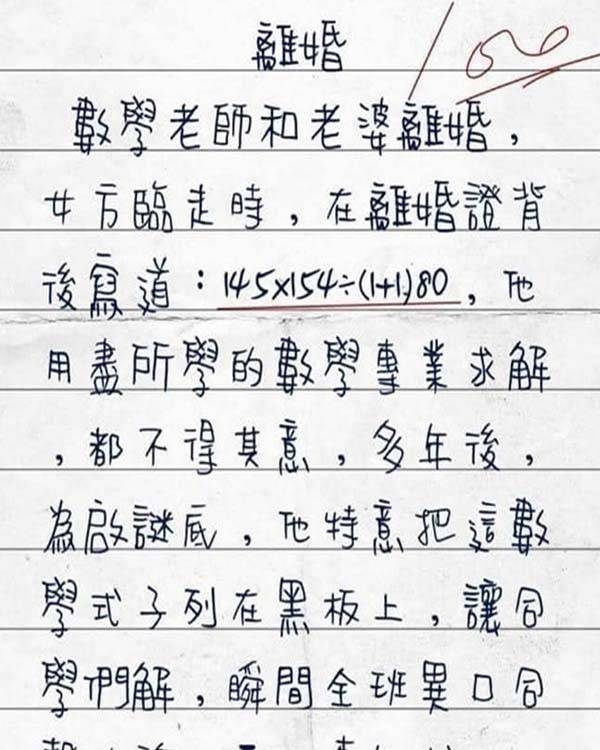 離婚
100
數學老師和老婆離婚，
女方臨走時，在離婚證背
後寫道：145×154÷(1+1)80，他
用盡所學的數學專業求解
，都不得其意，多年後，
為啟謎底，他特意把這數
學式子列在黑板上，讓同
學們解，瞬間全班異口同